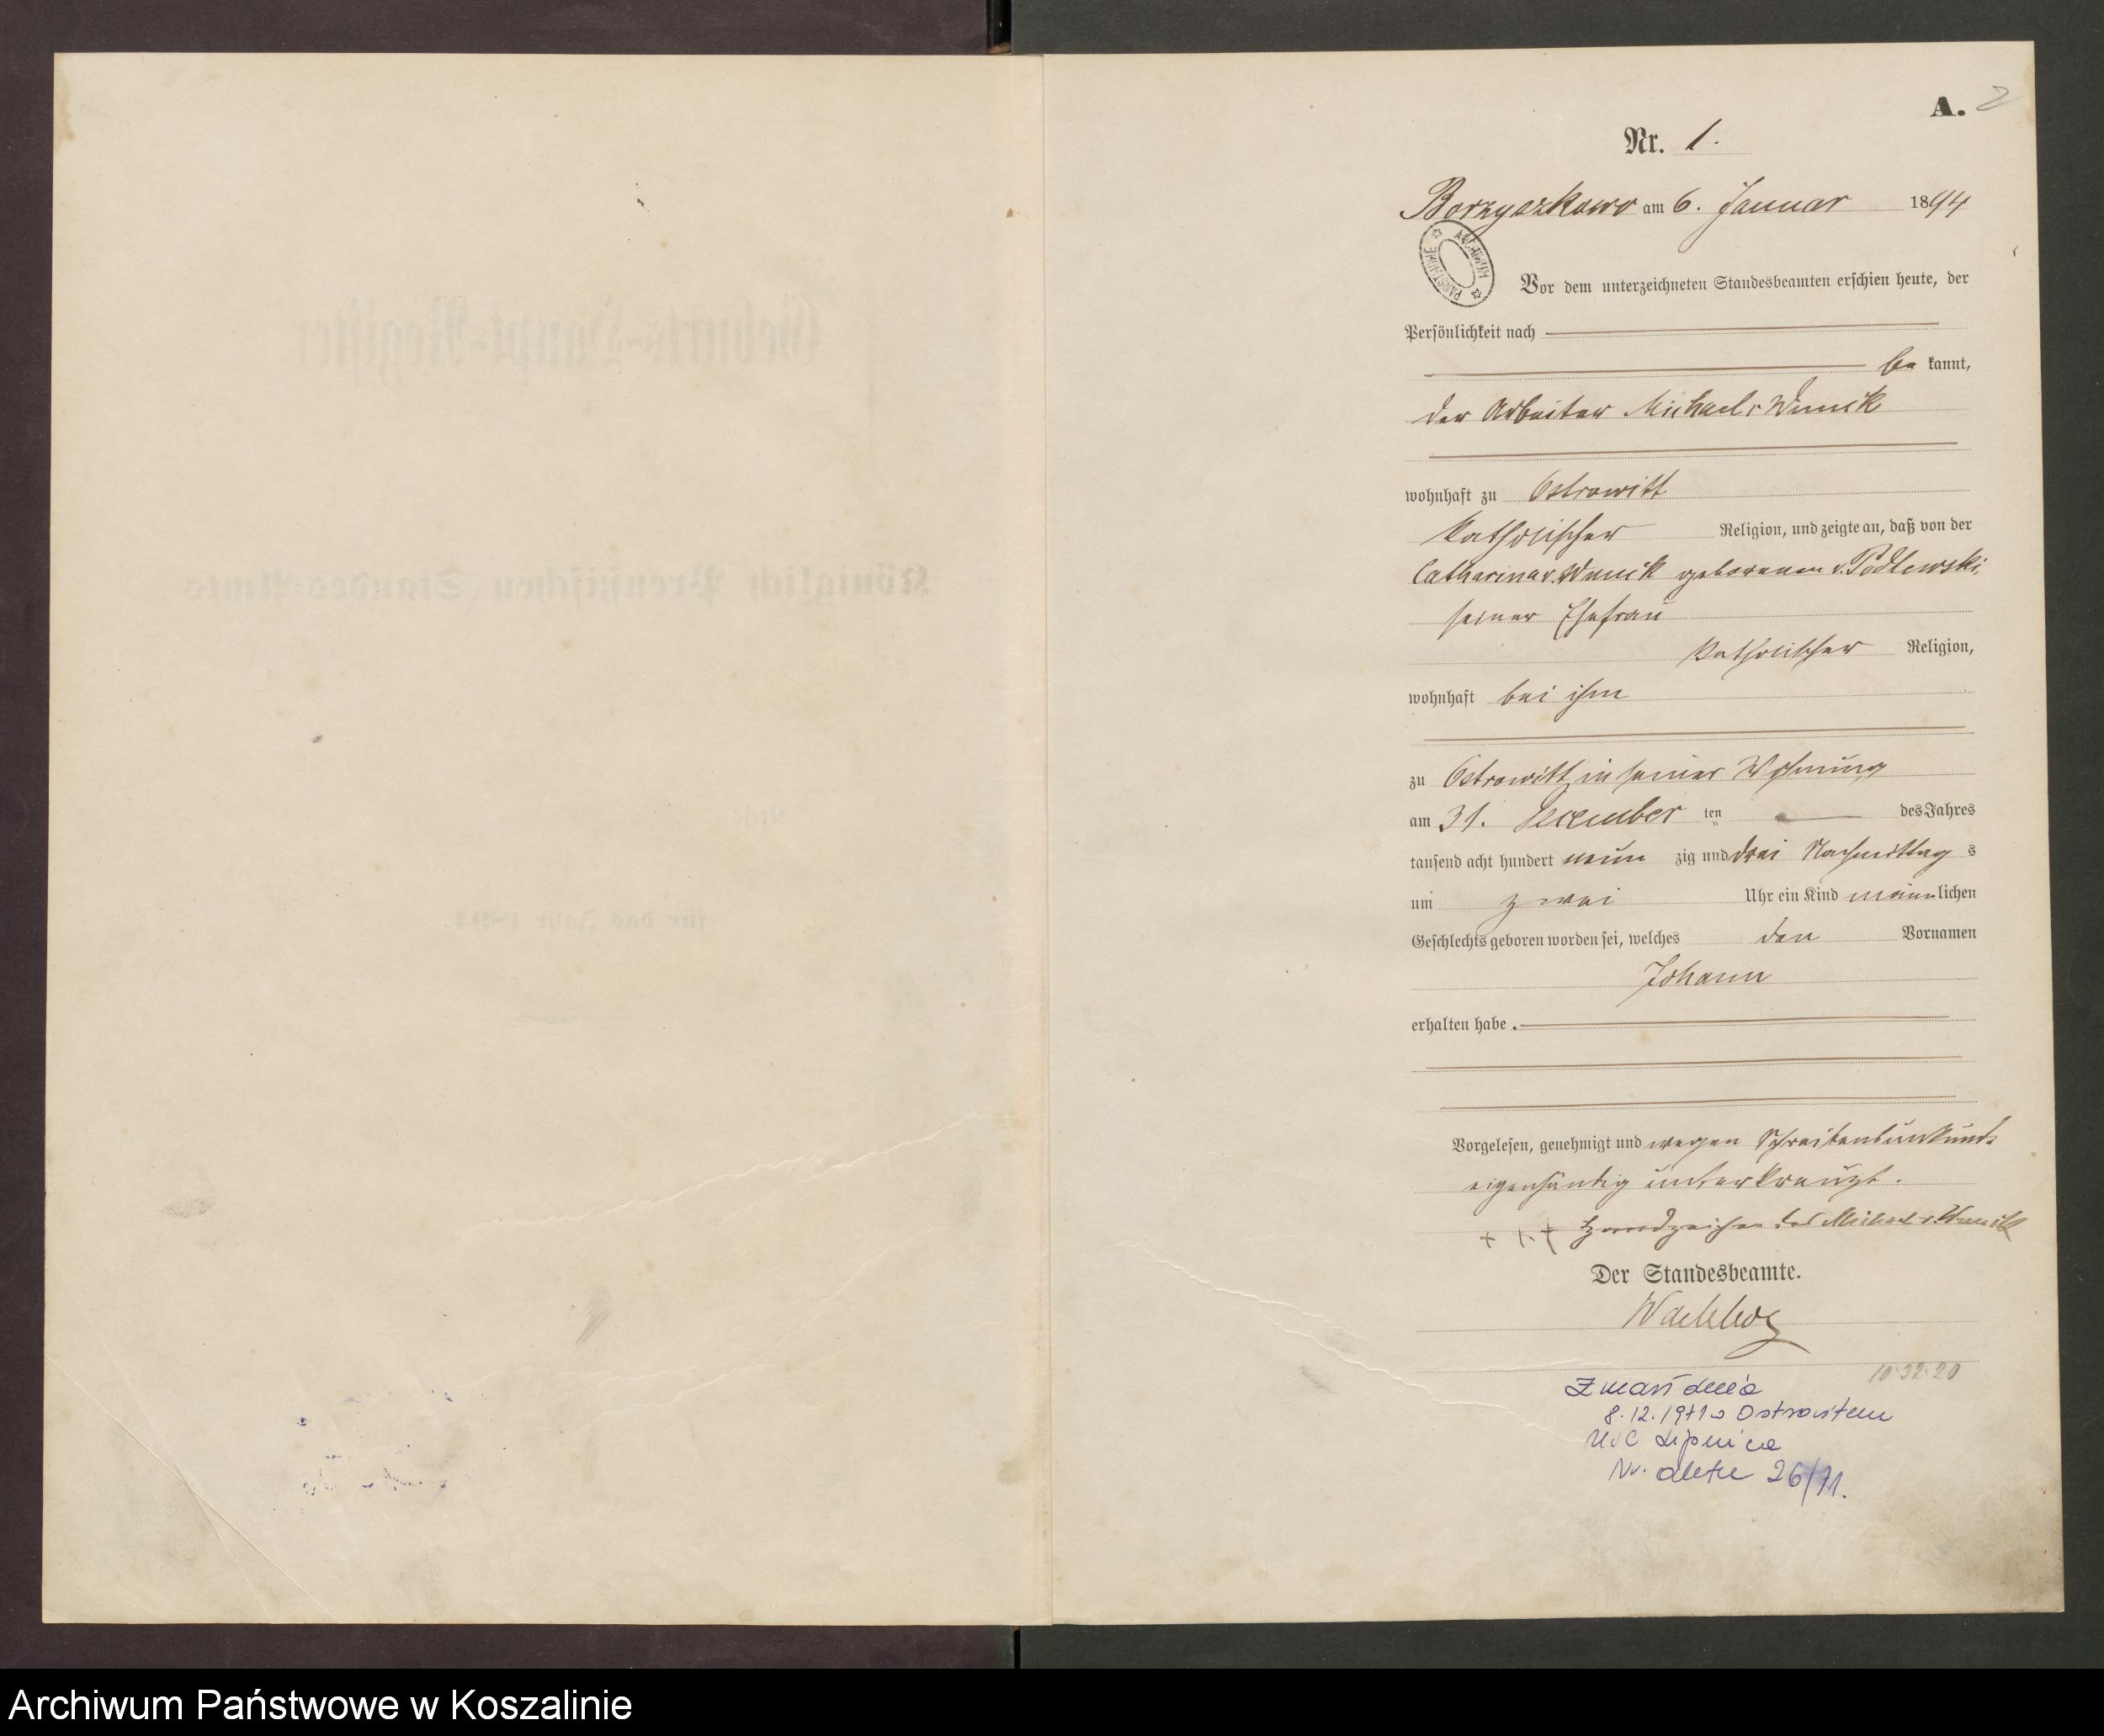 A. 2
Nr. 1.
Borzyszkowo am 6. Januar 1894
ARCHIWUM PAŃSTWOWE
Vor dem unterzeichneten Standesbeamten erschien heute, der
Persönlichkeit nach
be kannt,
der Arbeiter Michael v. Wnuck
wohnhaft zu Ostrowitt
katholischer Religion, und zeigte an, daß von der
Catharina v. Wnuck geborenen v. Podlewski,
seiner Ehefrau
katholischer Religion,
wohnhaft bei ihm
zu Ostrowitt, in seiner Wohnung
am 31. December ten des Jahres
tausend acht hundert neun zig und drei Nachmittag s
um zwei Uhr ein Kind männlichen
Geschlechts geboren worden sei, welches den Vornamen
Johann
erhalten habe.
Vorgelesen, genehmigt und wegen Schreibensunkunde
eigenhändig unterkreuzt.
+ + + Handzeichen des Michael v. Wnuck
Der Standesbeamte.
10.32.20
Zmarł dnia
8.12.1971 w Ostrowitem
USC Lipnica
Nr. aktu 26/71.
Geburts-Haupt-Register
Königlich Preußischen Standes-Amts
für das Jahr 1894.
Archiwum Państwowe w Koszalinie